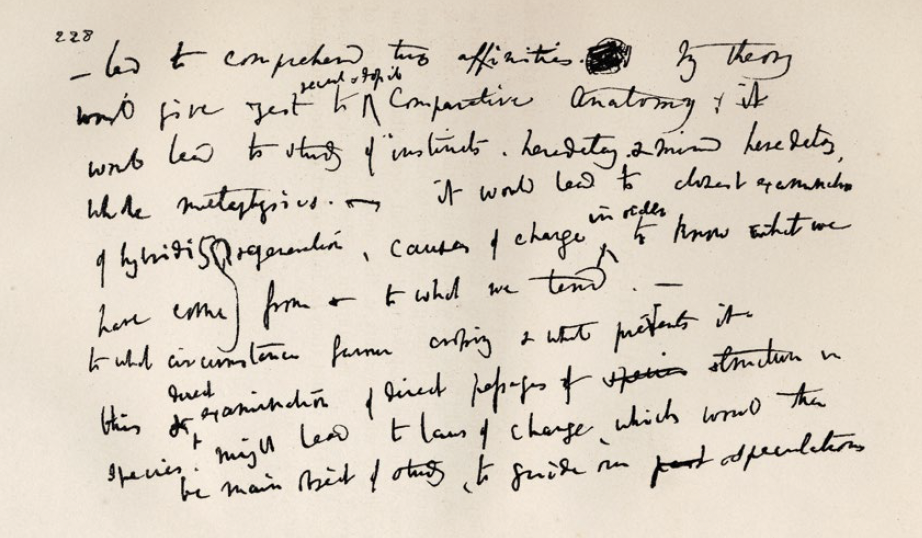 228
– led to comprehend true affinities. My theory
would give zest to recent & fossil Comparative Anatomy, & it
would lead to study of instincts, heredetary & mind heredetary,
whole metaphysics. – it would lead to closest examination
of hybridity regeneration, causes of change in order to know what we
have come from & to what we tend. –
to what circumstances favour crossing & what prevents it –
this & direct examination of direct passages of species structure in
species, might lead to laws of change, which would then
be main object of study, to guide our past speculations